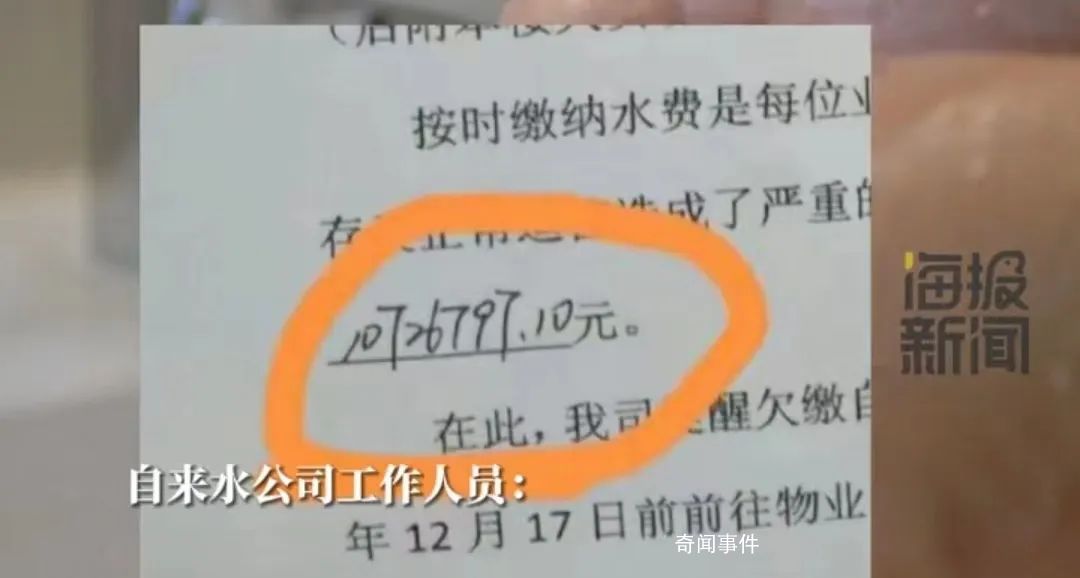 按时缴纳水费是每位业
造成了严重的
10726797.10元。
在此，我司提醒欠缴自
年12月17日前前往物业
自来水公司工作人员：
海报
新闻
奇闻事件